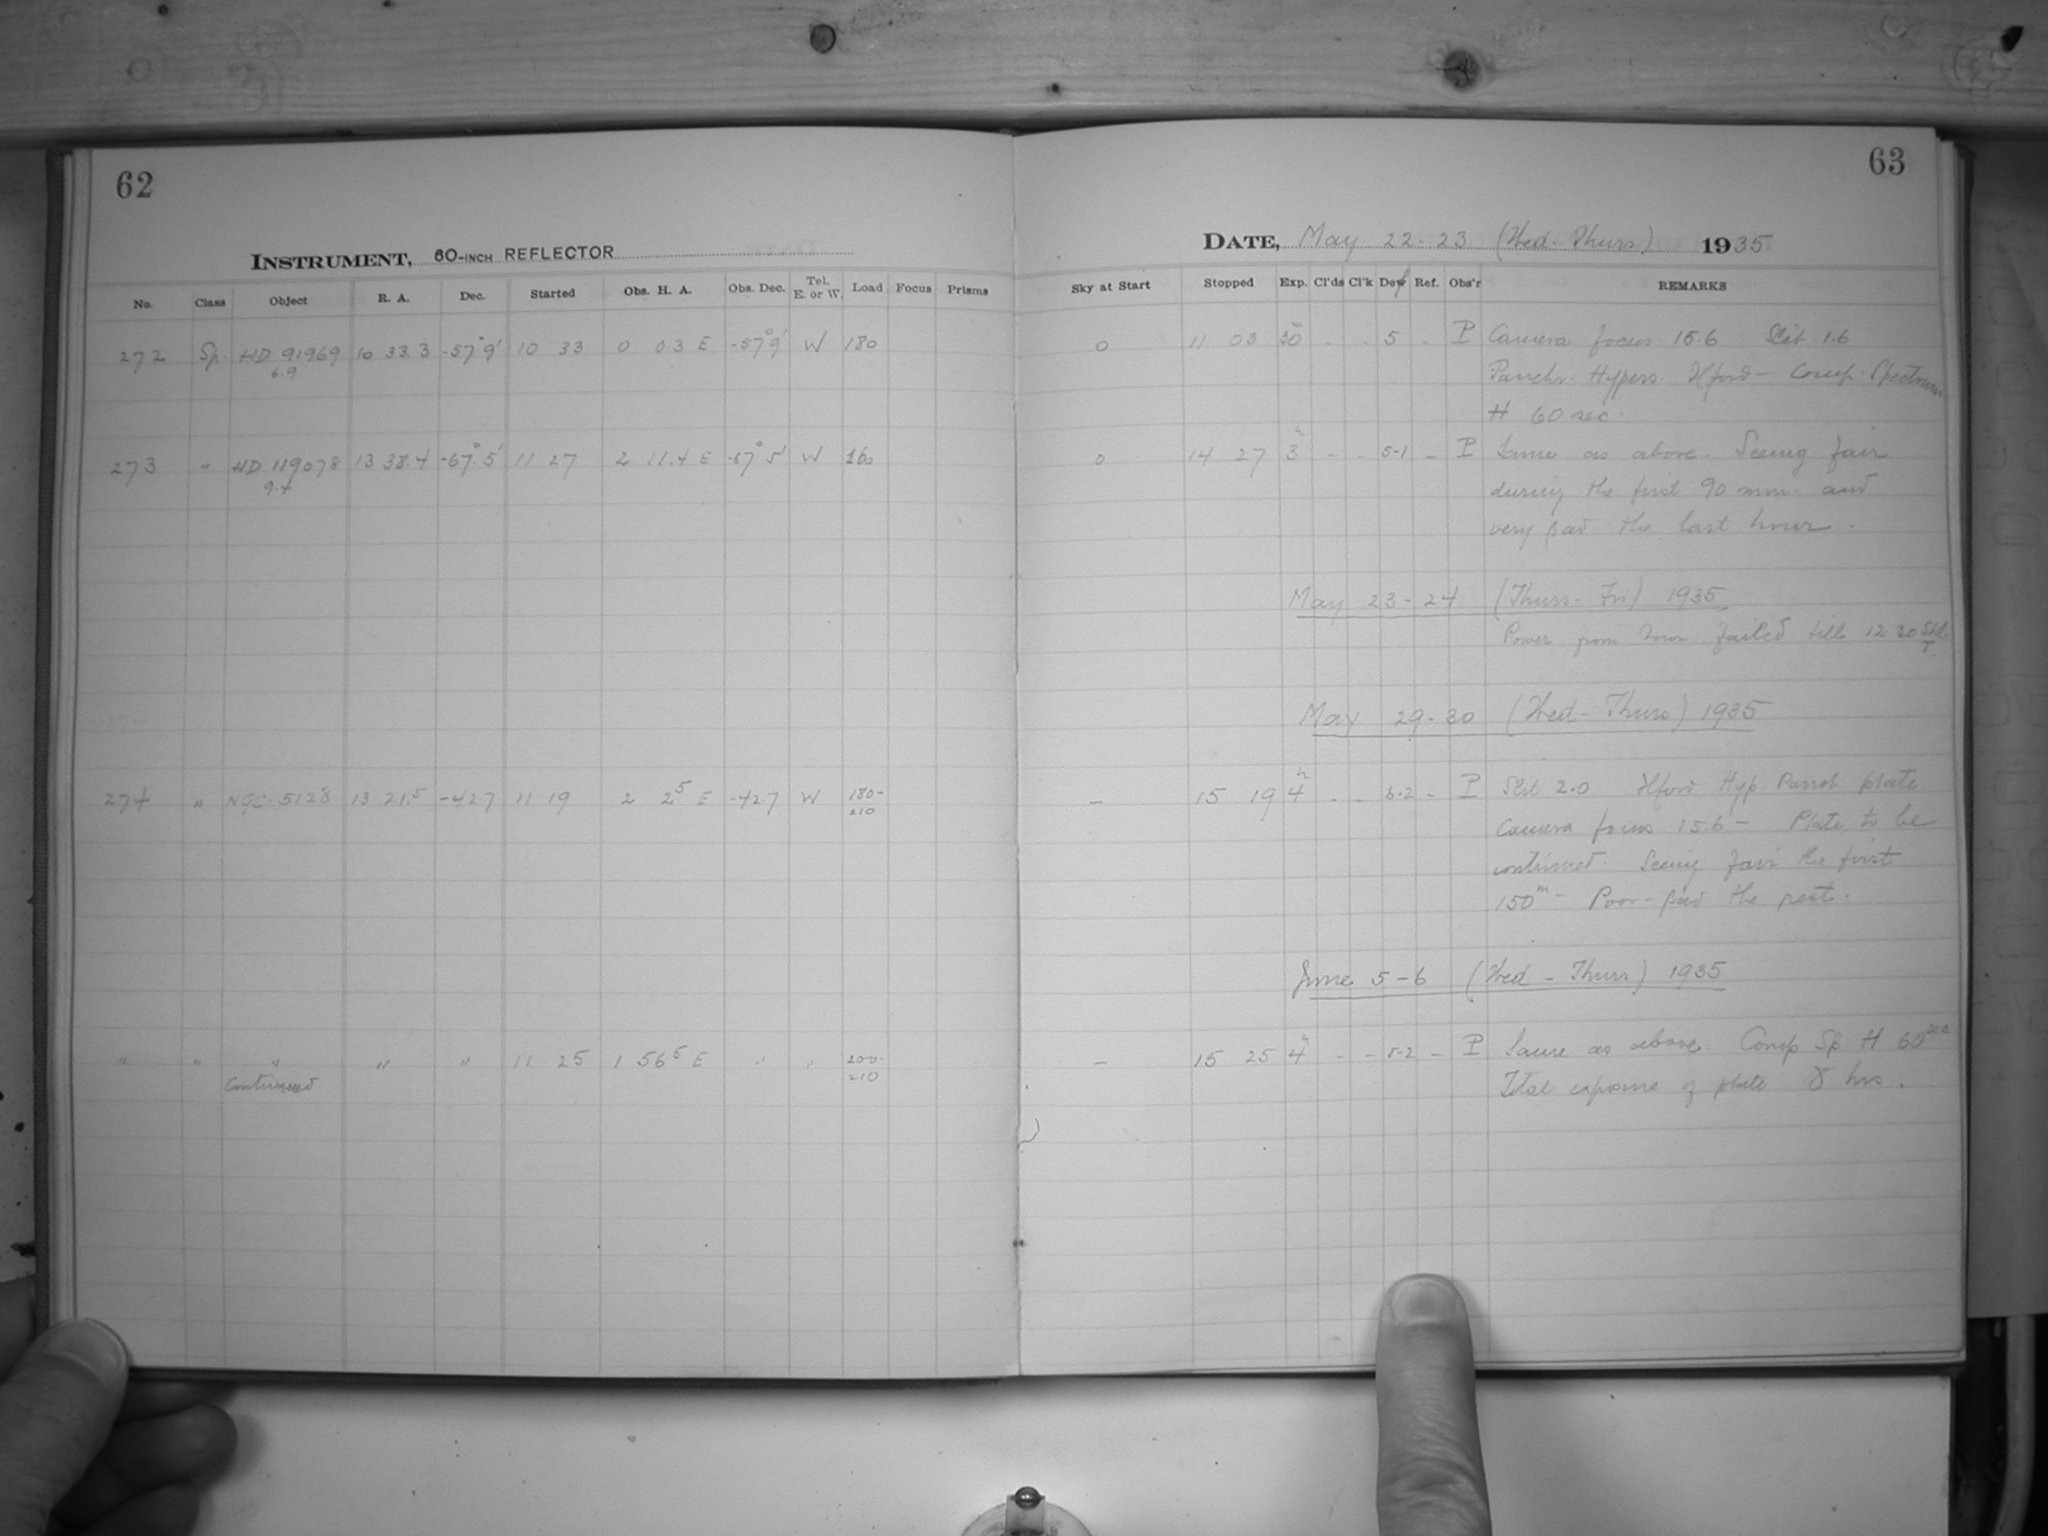 62
INSTRUMENT, 60-INCH REFLECTOR
No. Class Object R. A. Dec. Started Obs. H. A. Obs. Dec. Tel. E. or W. Load Focus Prisms
272 Sp. HD 91969 10 33.3 -57°9' 10 33 0 0.3 E -57°9' W 180
6.9
273 " HD 119078 13 38.4 -67°.5' 11 27 2 11.4 E -67°5' W 160
9.4
274 " NGC 5128 13 21.5 -42 7 11 19 2 2⁵ E -42.7 W 180-
210
" " " " " 11 25 1 56⁵ E " " 200-
Continued 210
63
DATE, May 22-23 (Wed-Thurs) 1935
Sky at Start Stopped Exp. Cl'ds Cl'k Dew Ref. Obs'r REMARKS
0 11 03 30ᵐ - - 5 - P Camera focus 15.6 Slit 1.6
Panchr. Hypers. Ilford - Comp. Spectrum
H 60 sec.
0 14 27 3ʰ - - 5-1 - P Same as above. Seeing fair
during the first 90 min. and
very bad the last hour.
May 23-24 (Thurs-Fri) 1935
Power from Town failed till 12 30 Sid.
T.
May 29-30 (Wed-Thurs) 1935
- 15 19 4ʰ - - -2 - P Slit 2.0 Ilford Hyp. Panch plate
Camera focus 15.6 - Plate to be
continued. Seeing fair the first
150ᵐ - Poor-bad the rest.
June 5-6 (Wed-Thurs) 1935
- 15 25 4ʰ - - 5-2 - P Same as above. Comp Sp H 60ˢᵉᶜ
Total exposure of plate 8 hrs.